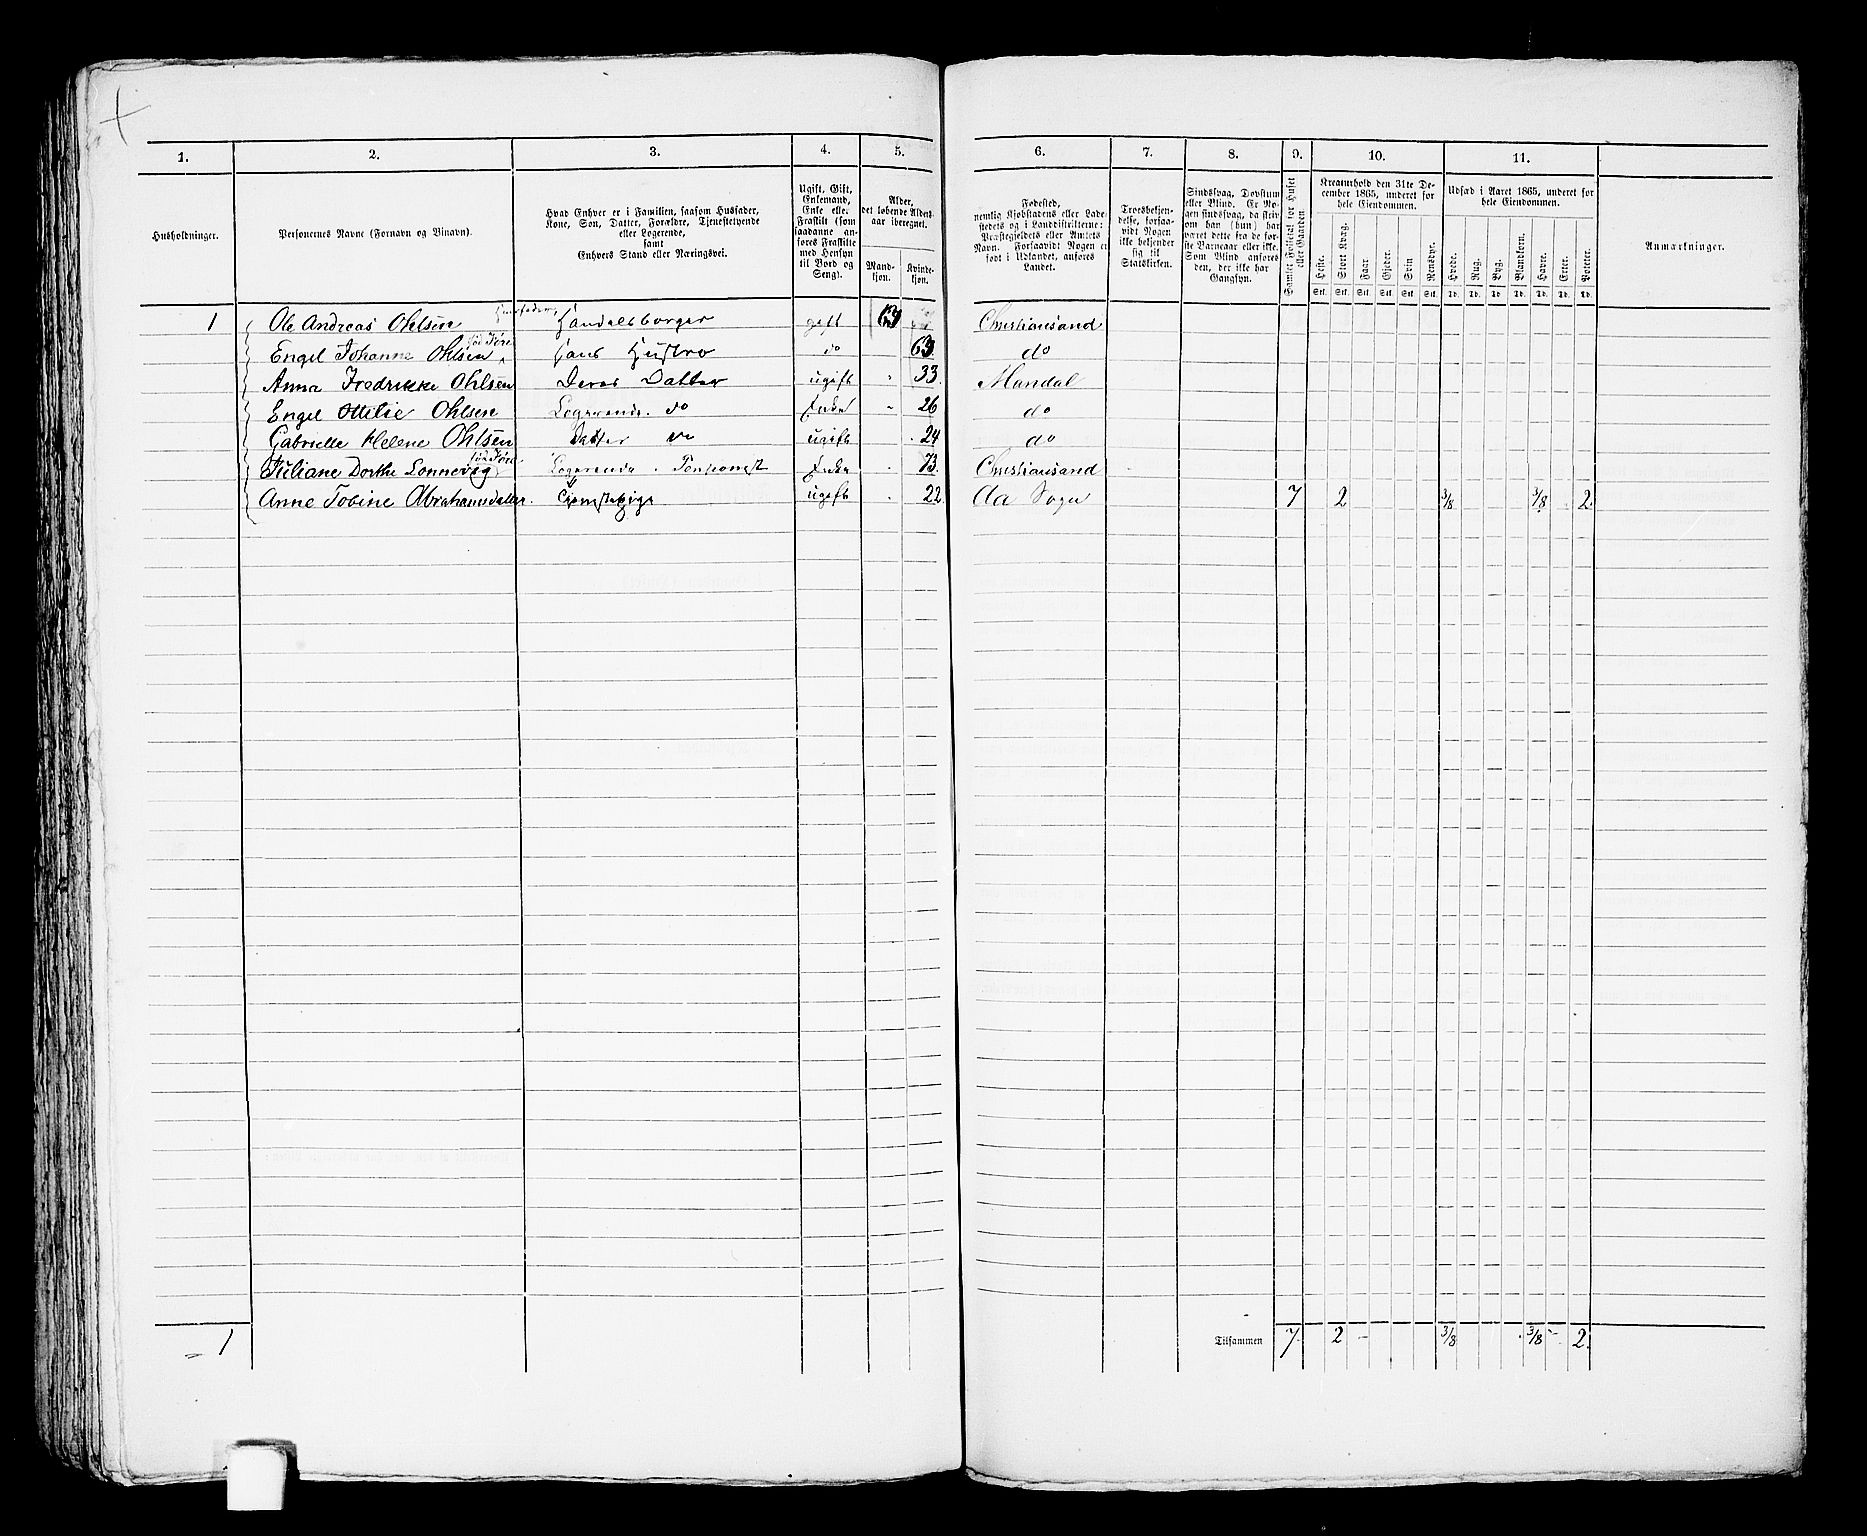 1. 2. 3. 4. 5. 6. 7. 8. 9. 10. 11.
Husholdninger.
Personernes Navne (Fornavn og Tilnavn).
Hvad Enhver er i Familien, saasom Husfader,
Kone, Søn, Datter, Forældre, Tjenestetyende
eller Logerende,
samt
Enhvers Stand eller Næringsvei.
Ugift, Gift,
Enkemand,
Enke eller
Fraskilt (som
saadanne an-
føres Fraskilte
med Hensyn
til Bord og
Seng).
Alder,
det løbende Alders-
aar iberegnet.
Mand-
kjøn.
Kvinde-
kjøn.
Fødested,
nemlig Kjøbstadens eller Lade-
stedets og i Landdistrikterne:
Præstegjeldets eller Amtets
Navn. Forsaavidt Nogen er
født i Udlandet, anføres
Landet.
Troesbekjen-
delse, forsaa-
vidt Nogen
ikke bekjender
sig til
Statskirken.
Sindssvag, Døvstum
eller Blind. Er No-
gen sindssvag, da skriv
om han (hun) har
været dette fra de før-
ste Barneaar eller ikke.
Som Blind anføres
den, der ikke har
Gangsyn.
Samlet Folketal for Huset
eller Gaarden
Kreaturhold den 31te De-
cember 1865, underet for
hele Eiendommen.
Heste. Stort Kvæg. Faar Gjeder. Svin Rensdyr.
Stk. Stk. Stk. Stk. Stk. Stk.
Udsæd i Aaret 1865, underet for
hele Eiendommen.
Hvede. Rug. Byg. Blandkorn. Havre. Erter. Poteter.
Td. Td. Td. Td. Td. Td. Td.
Anmærkninger.
1 Ole Andreas Ohlsen Husfader, Handelsborger gift 69 Christiansand
Engel Johanne Ohlsen Hans Hustro do 69 do
Anna Fredrikke Ohlsen Deres Datter ugift 33 Mandal
Engel Ottilie Ohlsen Logerende do Enke 26 do
Gabrielle Helene Ohlsen Datter do ugift 24 do
Juliane Dorthe Lonnevig Logerende Pensionist Enke 73 Christiansand
Anne Tobine Abrahamsdatter Tjenestepige ugift 22 Aa Sogn 7 2 3/8 3/8 2
1 Tilsammen 7 2 3/8 3/8 2